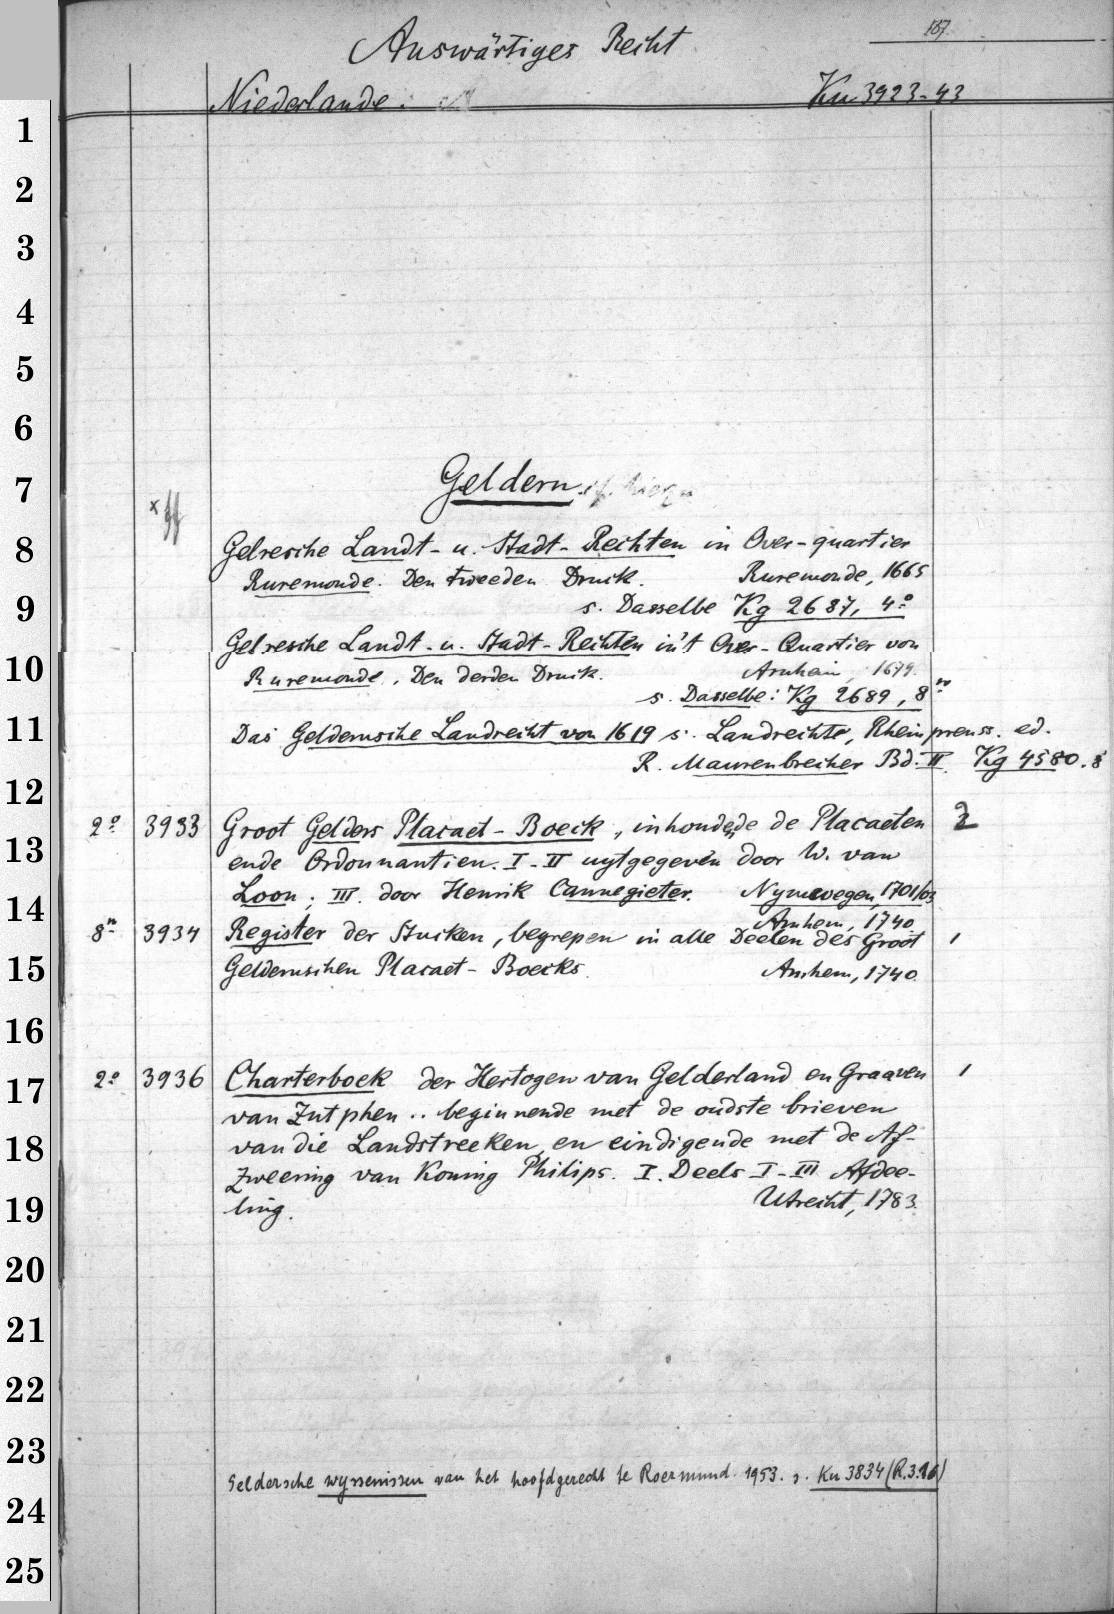 167
Auswärtiges Recht
Niederlande. Ku 3923-43
1
2
3
4
5
6
7
8
9
10
11
12
13
14
15
16
17
18
19
20
21
22
23
24
25
Geldern.
Gelresche Landt- u. Stadt-Rechten in Over-quartier
Ruremonde. Den tweeden Druck. Ruremonde, 1665
s. Dasselbe Kg 2687, 4º
Gelresche Landt- u. Stadt-Rechten in't Over-Quartier von
Ruremonde. Den derden Druck. Arnheim, 1679.
s. Dasselbe: Kg 2689, 8º
Das Geldernsche Landrecht von 1619 s. Landrechte, Rheinpreuss. ed.
R. Maurenbrecher Bd. II. Kg 4580. 8
2º 3933 Groot Gelders Placaet-Boeck, inhoudende de Placaeten 2
ende Ordonnantien. I-II uytgegeven door W. van
Loon; III. door Henrik Cannegieter. Nymwegen, 1701/03
Arnhem, 1740.
8º 3934 Register der Stucken, begrepen in alle Deelen des Groot 1
Geldernschen Placaet-Boecks. Arnhem, 1740.
2º 3936 Charterboek der Hertogen van Gelderland en Graaven 1
van Zutphen .. beginnende met de oudste brieven
van die Landstreeken en eindigende met de Af-
zweering van Koning Philips. I. Deels I-III Afdee-
ling. Utrecht, 1783.
Geldersche wyssenissen van het hoofdgerecht te Roermund. 1953. s. Ku 3834 (R.3.16)